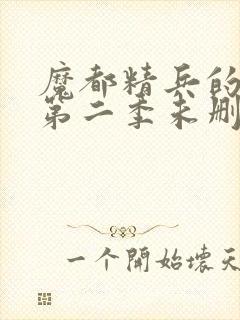 魔都精兵的
第二季未删
一个開始壞天